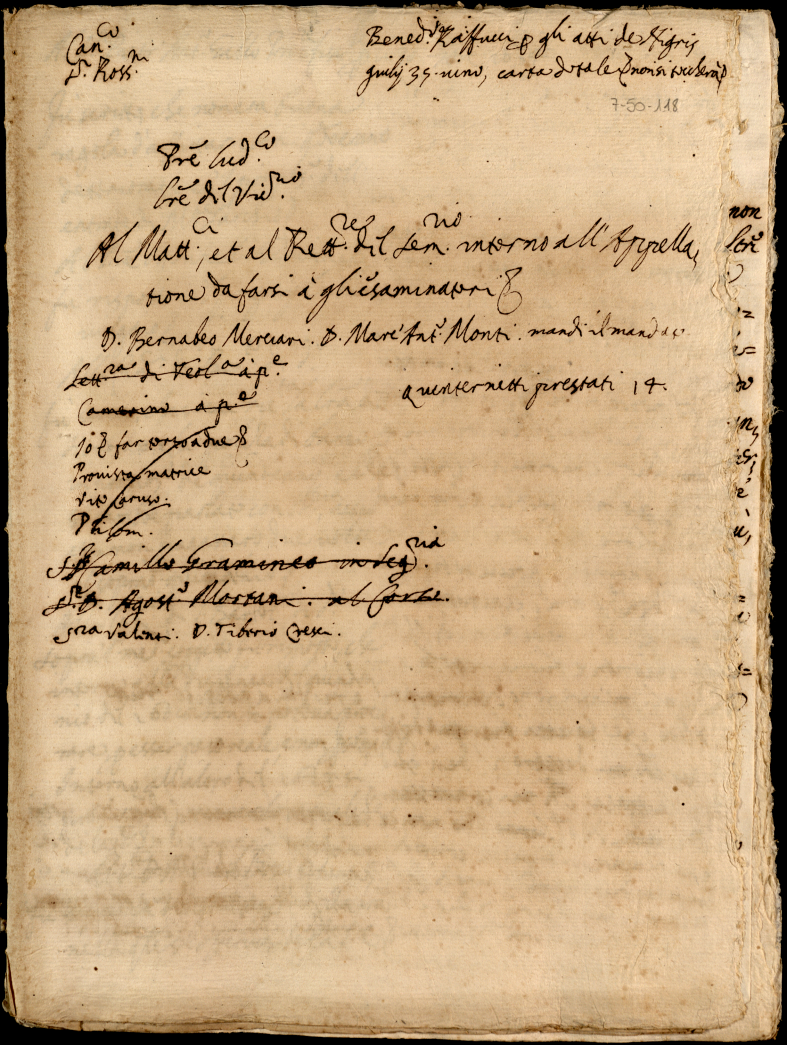 Can.co
S.r Ross.ni
Bened.o Raffucci p gli atti de Nigris
giulij 35. uino, carta dotale p non si
7-50-118
Pre Lud.co
Lre del Vic.rio
Al Matt.ci, et al Rett.re del Sem.rio interno all'Appella,
tione da farsi à gli esaminatori
D. Bernabeo Merciari. D. Marc'Ant.o Monti. mandi il mandato
Lett.ra di Teol.a à p.e
Quinternetti prestati 14.
Camerino à p.e
10 p far due
Prouista matrice
Vito Caruso.
S.r Camillo Gramineo in Seg.ria
S.r D. Agost.o Mortani. al Corte.
S.ra Valenti. D. Tiberio Cresci.
non